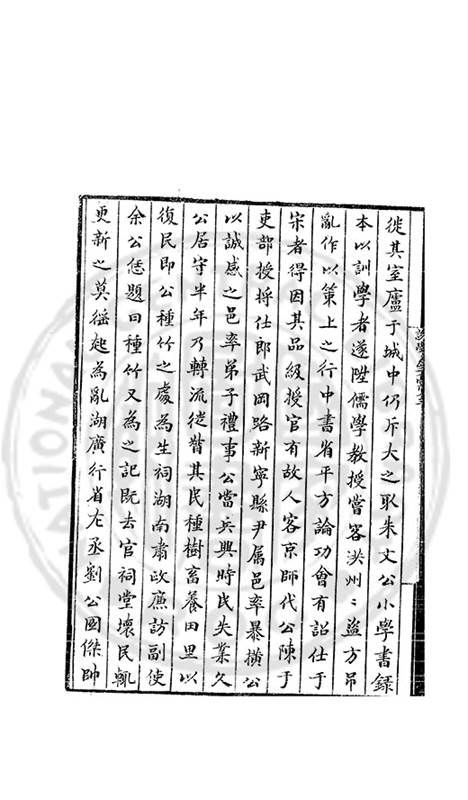 從其室廬于城中仍斥大之取朱文公小學書錄
本以訓學者遂陞儒學教授嘗客洪州〻盜方吊
亂作以策上之行中書省平方論功會有詔仕于
宋者得因其品級授官有故人客京師代公陳于
吏部授將仕郎武岡路新寧縣尹属邑率暴横公
以誠感之邑率弟子禮事公當兵興時民失業久
公居守半年乃轉流徙揩其民種樹畜養田里以
復民即公種竹之處為生祠湖南肅政廉訪副使
余公恁題曰種竹又為之記既去官祠堂壞民輒
更新之莫徭起為亂湖廣行省左丞劉公國傑帥
NATIONAL